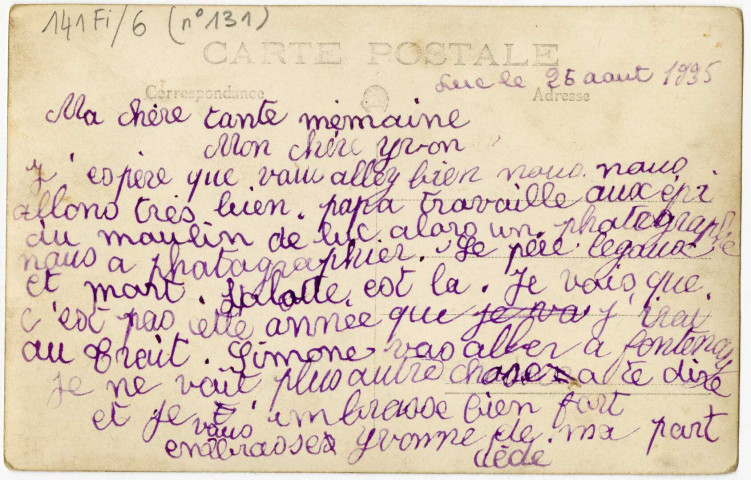 141 Fi/6 (n°131)
CARTE POSTALE
Correspondance
Adresse
Luc le 25 aout 1935
Ma chère tante mémaine
Mon chère Yvon
J'espère que vous alley bien nous nous
allons très bien. papa travaille aux épi
du moulin de luc alors un photographe
nous a photographier. Le père legaux
et mort. Lalotte est la. Je vois que
c'est pas cette année que je va j'irai
au Trait. Simone vas aller a fontenay
je ne voit plus autre chose a te dire
et je t'embrasse bien fort
vous
embrasser yvonne de ma part
dédé